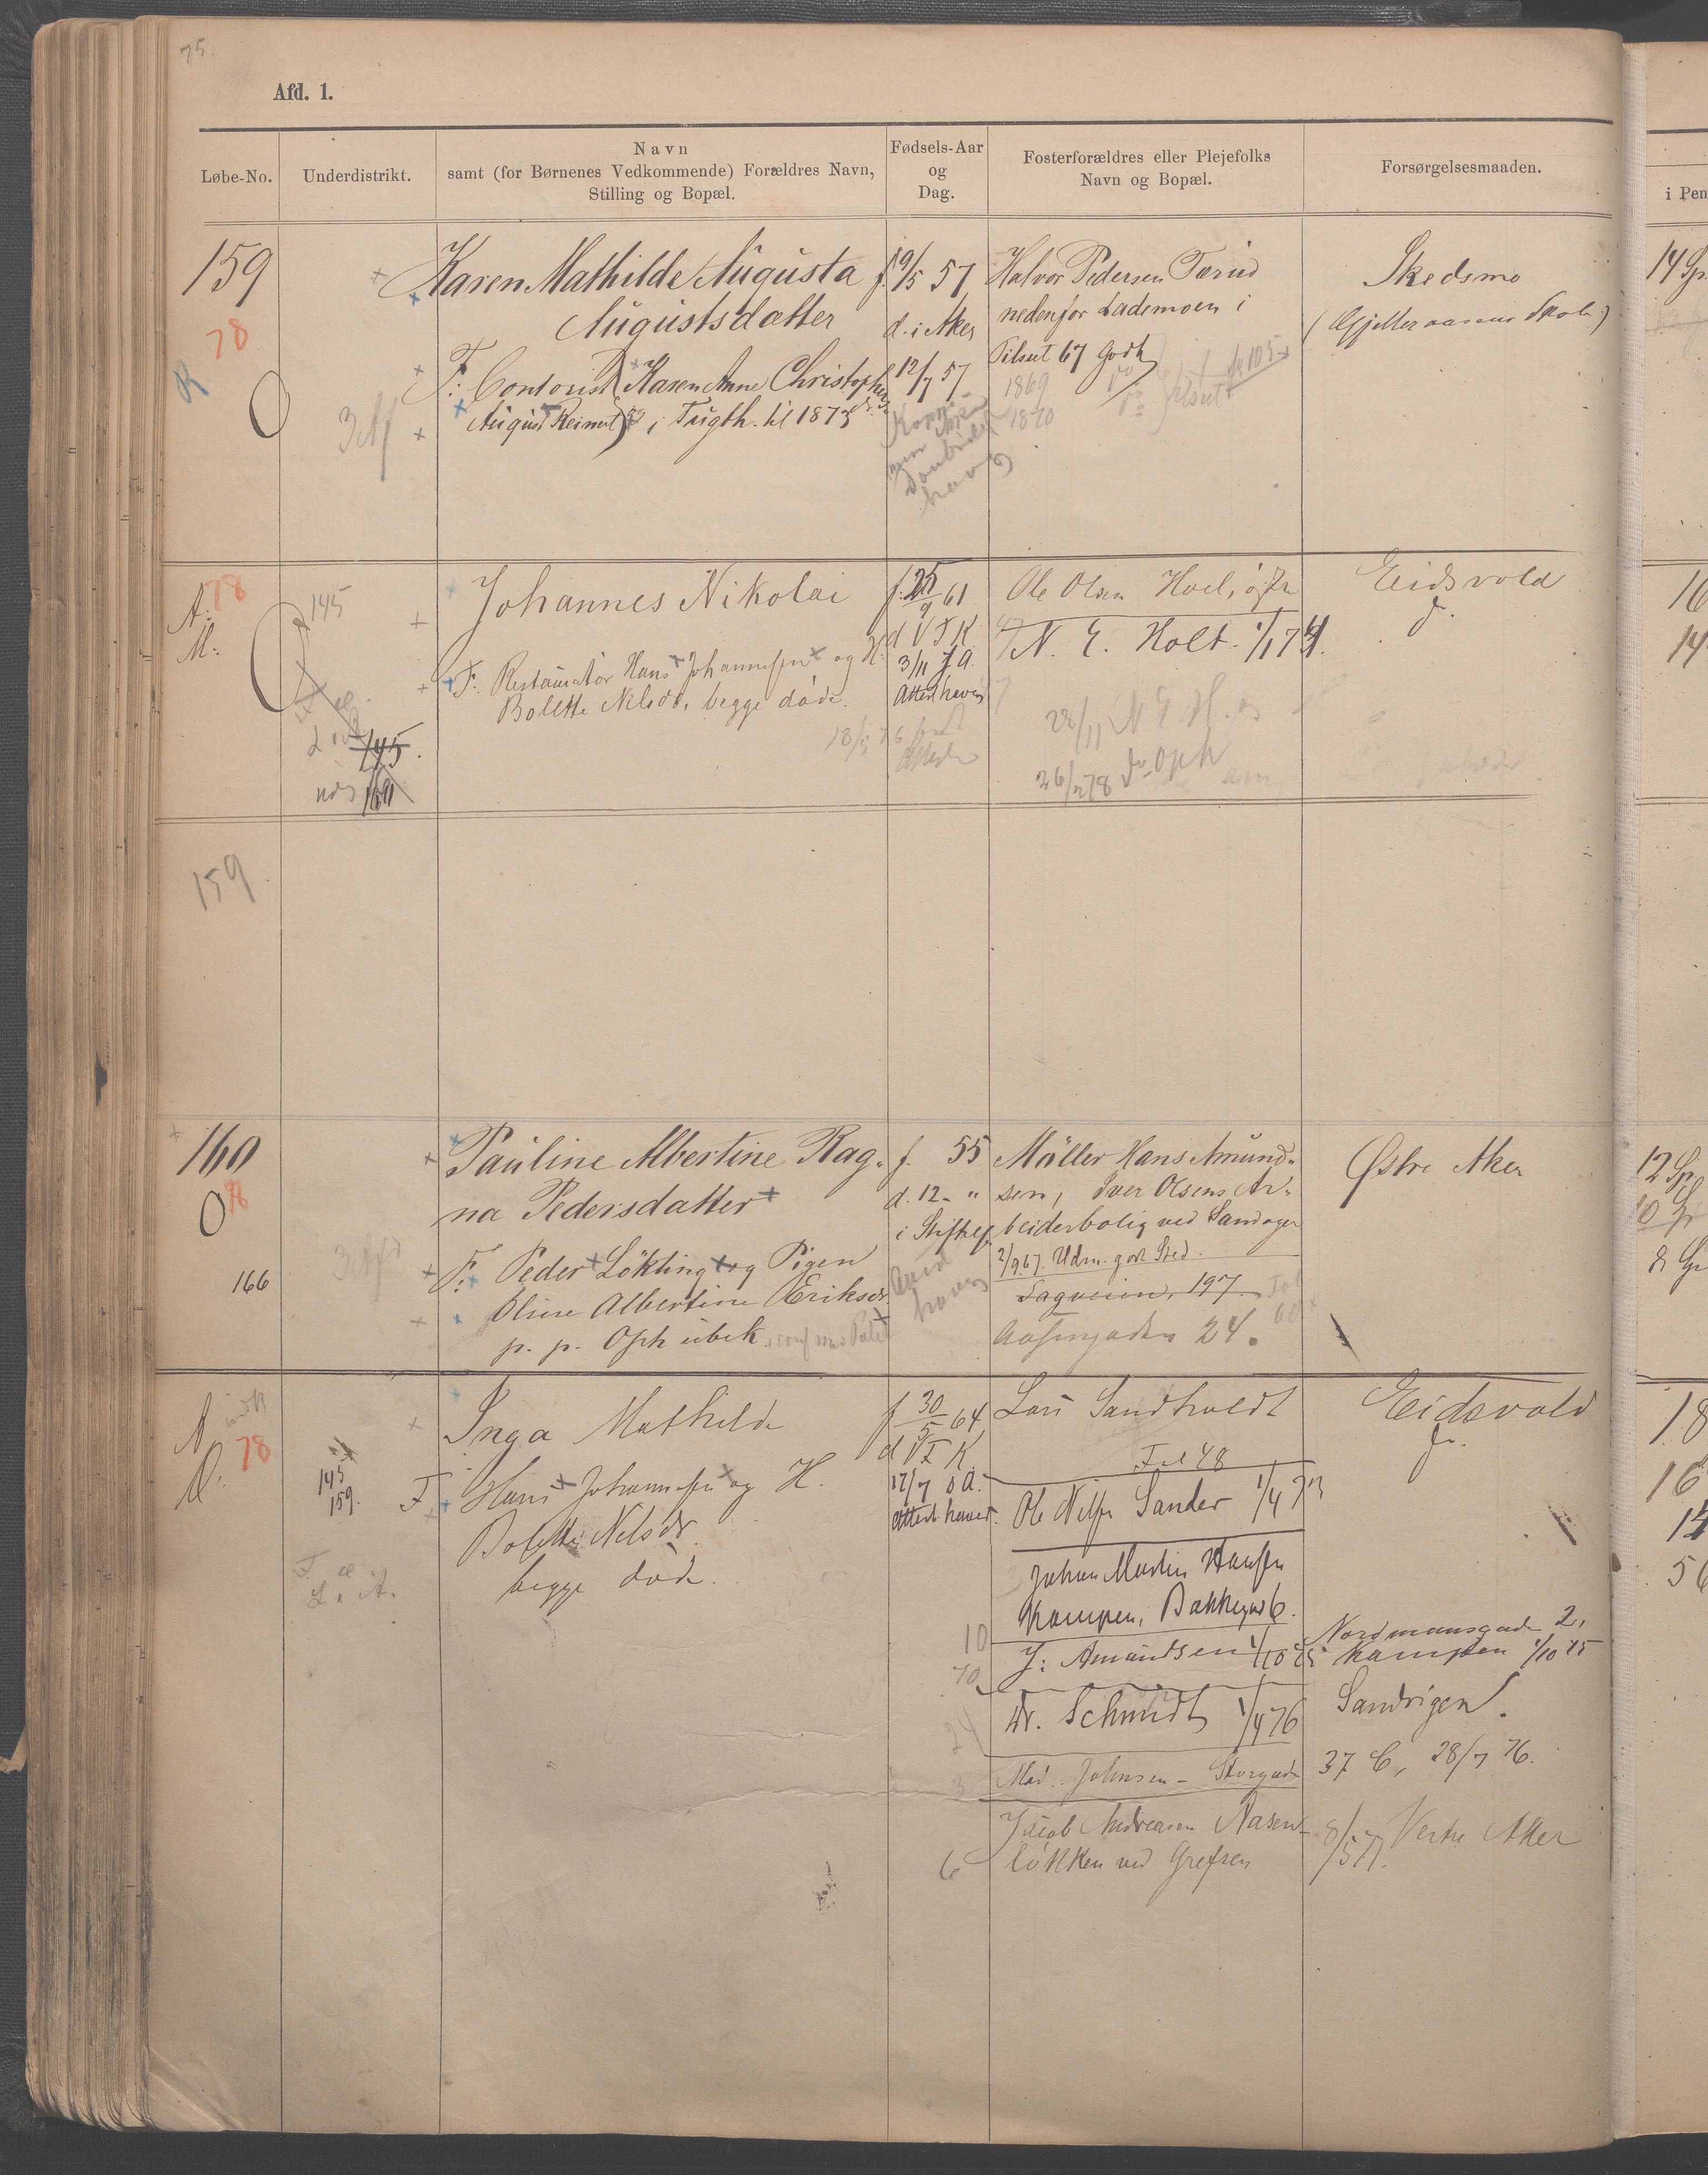 75.
Afd. 1.
Løbe-No.
Underdistrikt.
Navn
samt (for Børnenes Vedkommende) Forældres Navn,
Stilling og Bopæl.
Fødsels-Aar
og
Dag.
Fosterforældres eller Plejefolks
Navn og Bopæl.
Forsørgelsesmaaden.
i Pen
159
78
R
O
Karen Mathilde Augusta
Augustsdatter
F: Contorist (Karen Anne Christophers
August Reinert) i Tugth. til 1873
f. 19/5 57
d. i Aker
12/7 57
Halvor Pedersen Tærud
nedenfor Lademoen i
Tilseet 67 Godt
1869
1870
Skedsmo
(Gjelleraasens Skole)
14 Sp
A:
M:
78
145
145.
159
Johannes Nikolai
F: Restauratør Hans Johannesen og H.
Bolette Nilsdr, begge døde.
f. 25/9 61
d V F K
3/11 s. A.
Attest haves
18/5 76
Ole Olsen Hoel,
N. E. Holt. 1/1 74.
28/11 N E H.
26/2 78 do Oph
Eidsvold
16
14
159
160
O
78
166
Pauline Albertine Rag-
na Pedersdatter
F: Peder Løkting og Pigen
Oline Albertine Eriksdr
p. p. Oph ubek.
f. 55
d. 12 - "
i Stiftels.
haves
Møller Hans Amund-
sen, Iver Olsens Ar-
beiderbolig ved Sandager
2/9 67. Udm. godt Sted.
Sagveien, 197.
24.
Østre Aker
12 Sp
10 Sp
8 Sp
A
D.
78
145
159.
Inga Mathilde
F. Hans Johannesen og H.
Bolette Nelsdr.
begge døde.
f 30/5 64
d V F K
17/7 s A.
Attest haves.
Lars Sandholdt
Fol 48
Ole Nilsen Sander 1/4 73
Johan Martin Hansen
Kampen, Bakkegad 6.
J: Amundsen 1/10 75
Dr. Schmidt 1/4 76
Mad. Johnsen - Storgade
Jacob Andreasen Aasen-
løkken ved Grefsen
10
70
24
3
6
Eidsvold
Nordmansgade 2,
Kampen 1/10 75
Sandvigen.
37 C, 28/7 76.
8/5 77. Vestre Aker
18
16
14
56